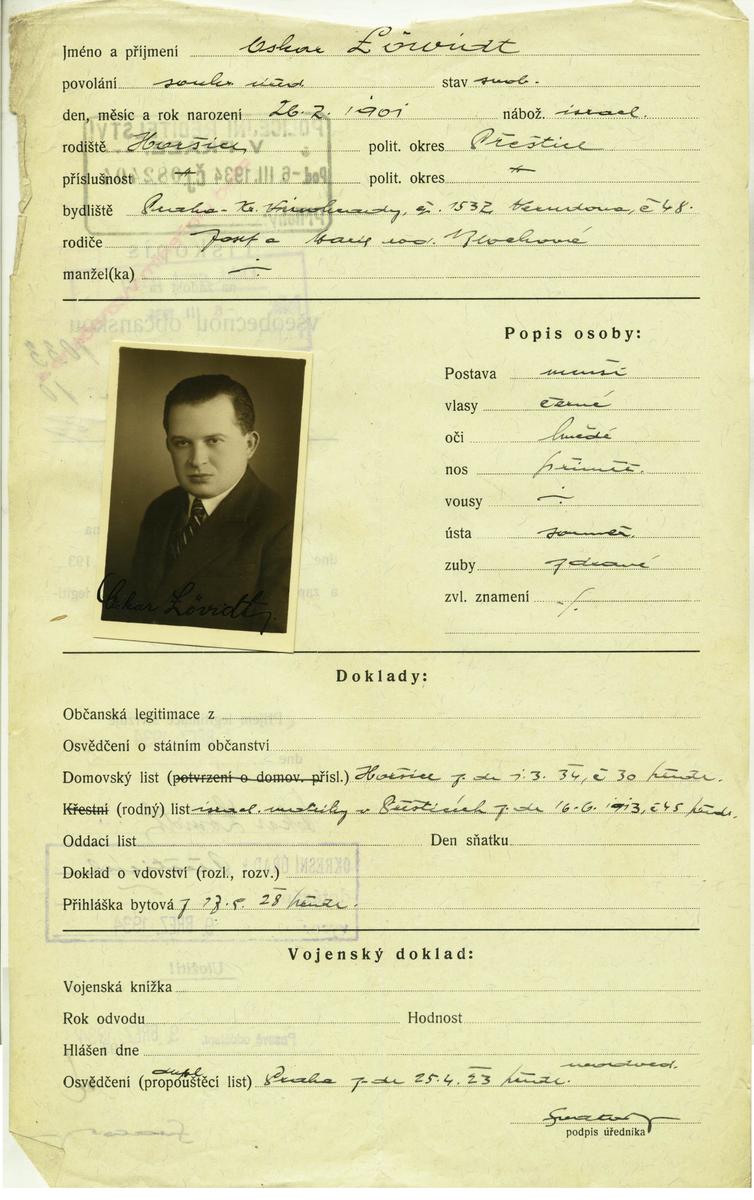 Jméno a příjmení Oskar Lövidt
povolání soukr. úřed. stav svob.
den, měsíc a rok narození 26.2.1901 nábož. israel.
rodiště Horšice polit. okres Přeštice
příslušnost polit. okres
bydliště Praha - XII. Vinohrady, čp. 1532 č 48.
rodiče Josef a Marie roz.
manžel(ka) ÷
Popis osoby:
Postava menší
vlasy černé
oči hnědé
nos přiměř.
vousy ÷
ústa souměr.
zuby zdravé
zvl. znamení ./.
Oskar Lövidt
Doklady:
Občanská legitimace z
Osvědčení o státním občanství
Domovský list (potvrzení o domov. přísl.) Horšice z de 1.3. 34, č 30
Křestní (rodný) list israel. matriky v Přešticích z de 16.6. 1913, č 45
Oddací list Den sňatku
Doklad o vdovství (rozl., rozv.)
Přihláška bytová z 28
Vojenský doklad:
Vojenská knížka
Rok odvodu Hodnost
Hlášen dne
neodved.
dupl.
Osvědčení (propouštěcí list) Praha z de 25.4. 23
podpis úředníka